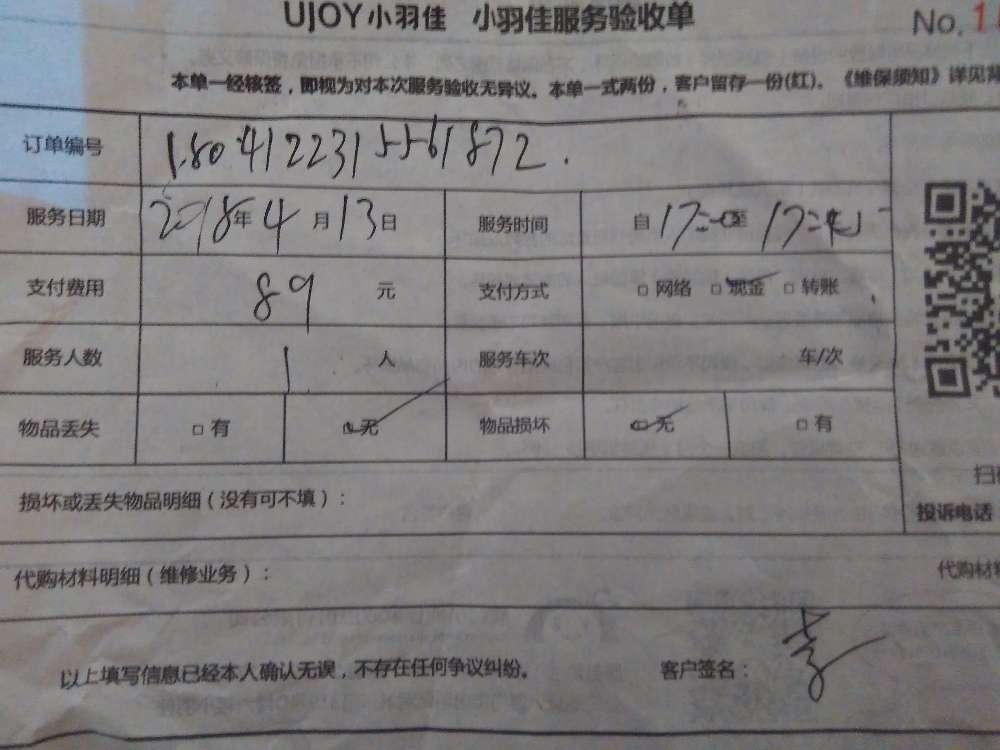 UJOY小羽佳 小羽佳服务验收单
No.1
本单一经核签，即视为对本次服务验收无异议。本单一式两份，客户留存一份(红)。《维保须知》详见背
订单编号 1804122315561872.
服务日期 2018年4月13日 服务时间 自 至
支付费用 89 元 支付方式 □网络 □现金 □转账
服务人数 1 人 服务车次 车/次
物品丢失 □有 □无 物品损坏 □无 □有
损坏或丢失物品明细（没有可不填）：
扫
投诉电话
代购材料明细（维修业务）：
代购材料
以上填写信息已经本人确认无误，不存在任何争议纠纷。 客户签名：